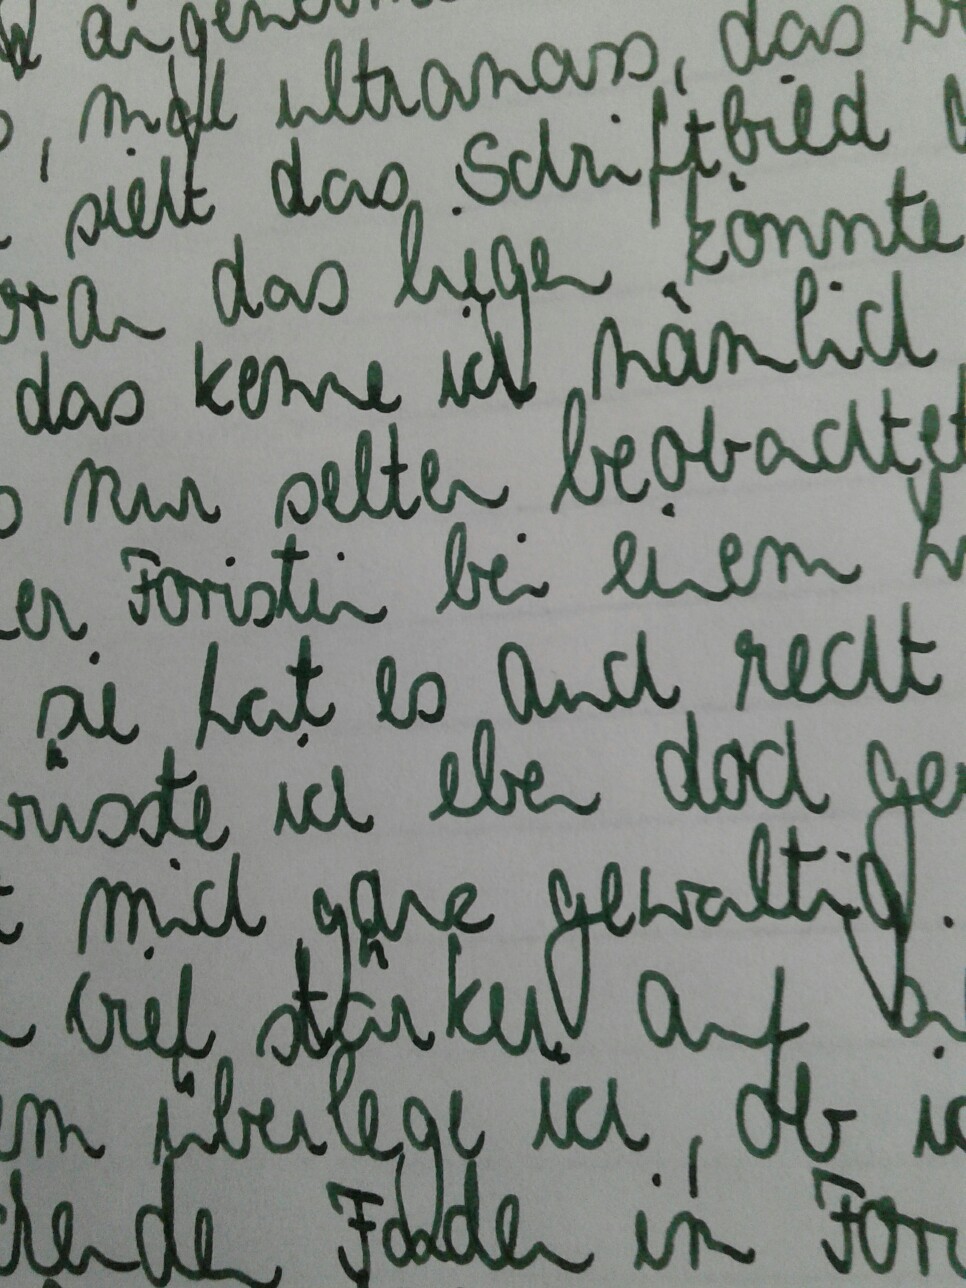 angenom
, mal ultranass, das
sieht das Schriftbild
woran das liegen könnte
das kenne ich nämlich
nur selten beobachtet
er Foristin bei einem
sie hat es auch recht
wüsste ich eben doch ge
mich ganz gewaltig.
viel stärker auf
em überlege ich, ob ic
chende Faden im For